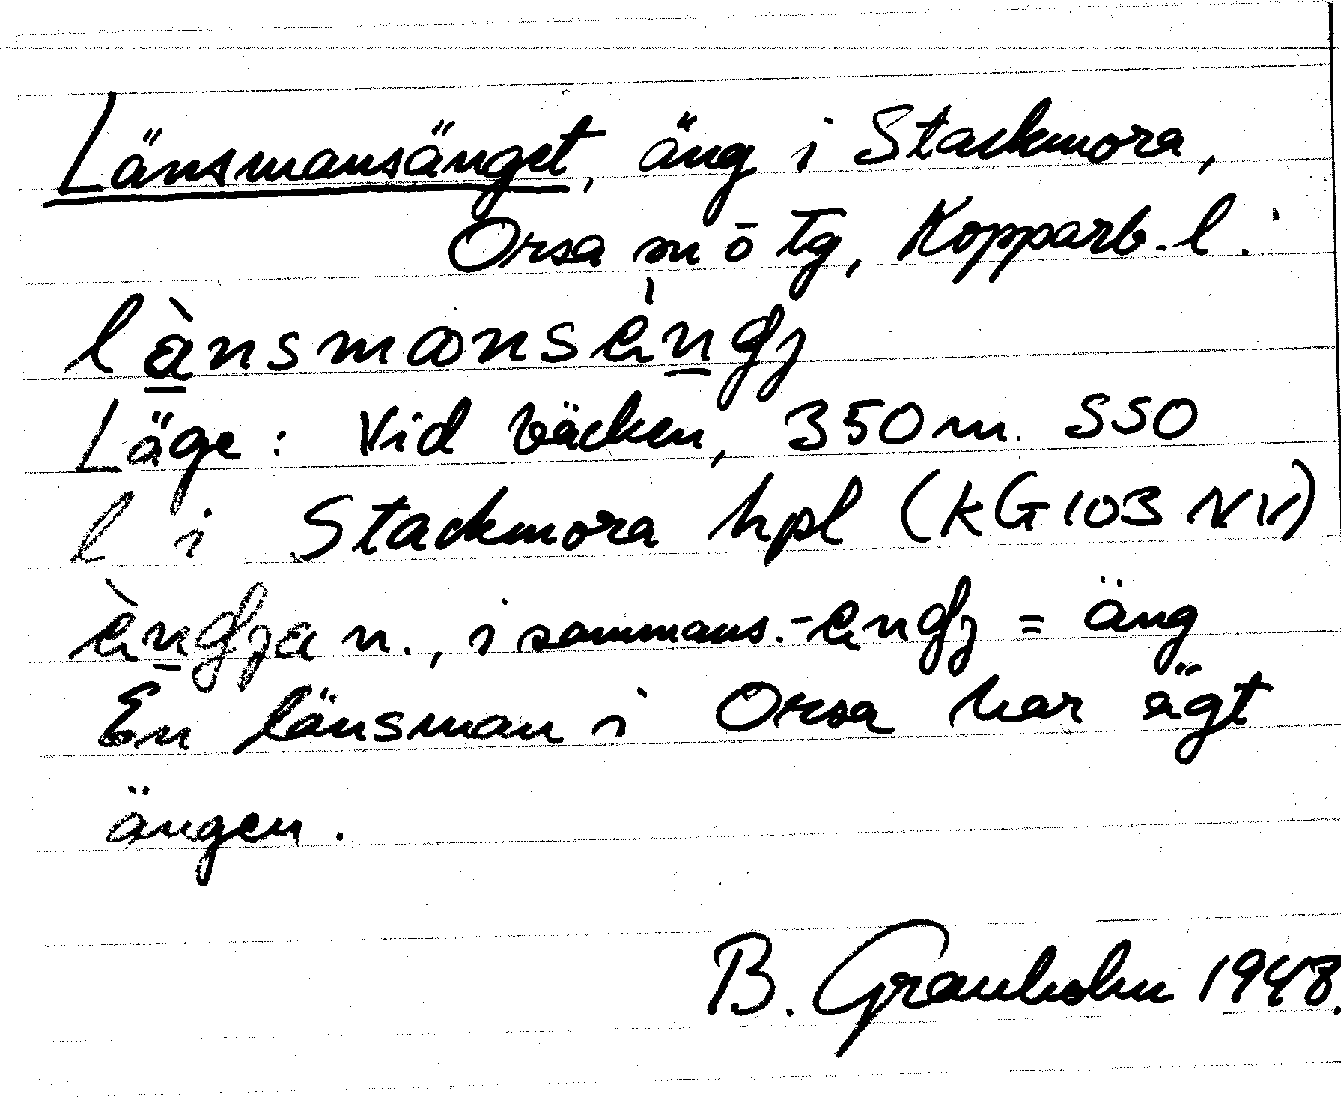 Länsmansänget, äng i Stackmora,
Orsa sn ō tg, Kopparb. l.
lä̀nsmansèngj
Läge: Vid bäcken, 350 m. SSO
l i Stackmora hpl (KG 103 NV)
èngja n., i sammans. -engj = äng
En länsman i Orsa har ägt
ängen.
B. Granholm 1948.